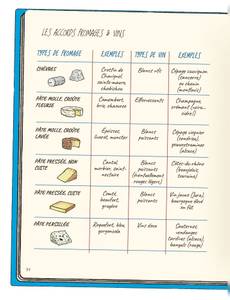 LES ACCORDS FROMAGES & VINS
TYPES DE FROMAGE
EXEMPLES
TYPES DE VIN
EXEMPLES
CHÈVRES
Crottin de
Chavignol,
sainte-maure,
chabichou
Blancs vifs
Cépage sauvignon
(sancerre)
ou chenin
(montlouis)
PÂTE MOLLE, CROÛTE
FLEURIE
Camembert,
brie, chaource
Effervescents
Champagne,
crémant (
PÂTE MOLLE, CROÛTE
LAVÉE
Époisses,
livarot, munster
Blancs
puissants
Cépage viognier
(condrieu),
gewurztraminer
(alsace)
PÂTE PRESSÉE, NON
CUITE
Cantal,
morbier, saint-
nectaire
Blancs
puissants
(éventuellement
rouges légers)
Côtes-du-rhône
(
PÂTE PRESSÉE,
CUITE
Comté,
beaufort,
gruyère
Blancs
puissants
Vin jaune (Jura)
bourgogne élevé
en fût
PÂTE PERSILLÉE
Roquefort, bleu,
gorgonzola
Vins doux
Sauternes,
vendanges
tardives (alsace)
banyuls (rouge)